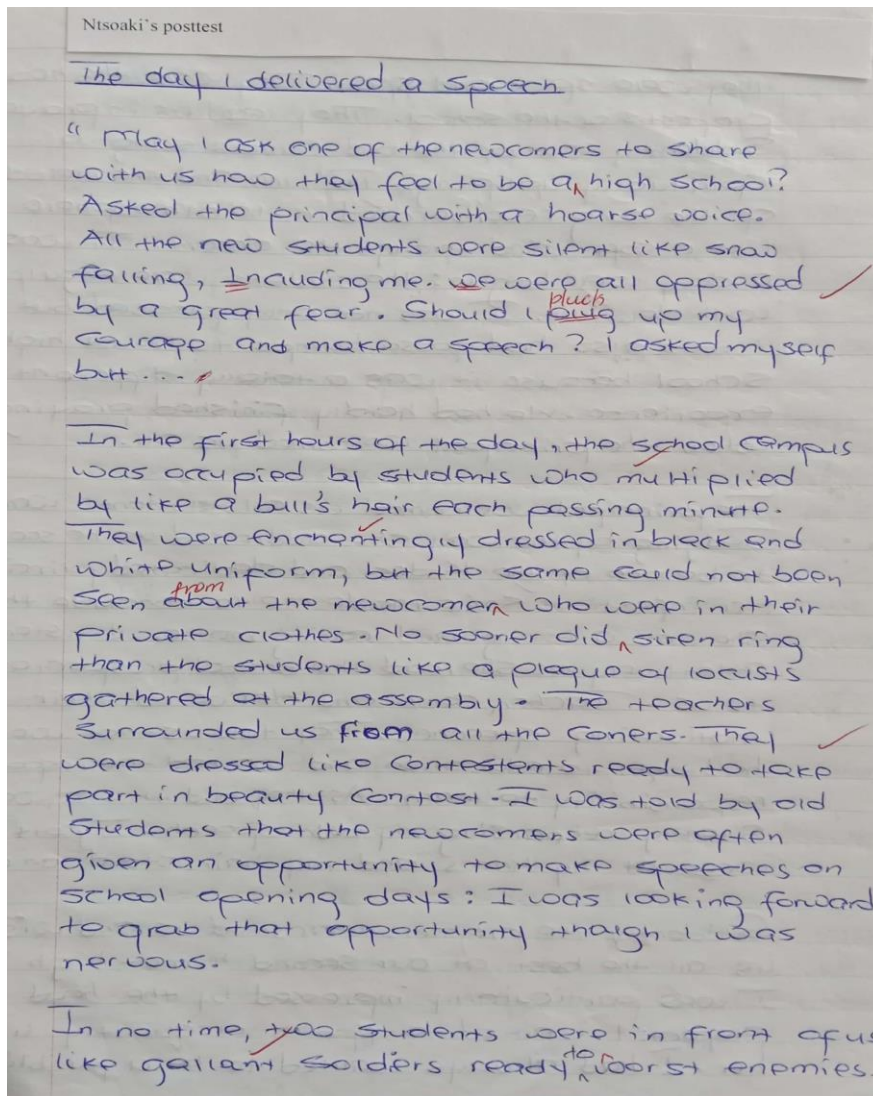 Ntsoaki's posttest
The day I delivered a speech
" May I ask one of the newcomers to share
with us how they feel to be a ^ high school?
Asked the principal with a hoarse voice.
All the new students were silent like snow
falling, Including me. we were all oppressed
pluck
by a great fear. Should I plug up my
courage and make a speech? I asked myself
but ....
In the first hours of the day, the school campus
was occupied by students who multiplied
by like a bull's hair each passing minute.
They were enchantingly dressed in black and
white uniform, but the same could not been
from
seen about the newcomer ^ who were in their
private clothes. No sooner did ^ siren ring
than the students like a plaque of locusts
gathered at the assembly. The teachers
surrounded us from all the coners. They
were dressed like contestants ready to take
part in beauty contest. I was told by old
students that the newcomers were often
given an opportunity to make speeches on
school opening days: I was looking forward
to grab that opportunity though I was
nervous.
In no time, two students were in front of us
to
like gallant soldiers ready ^ worst enemies.